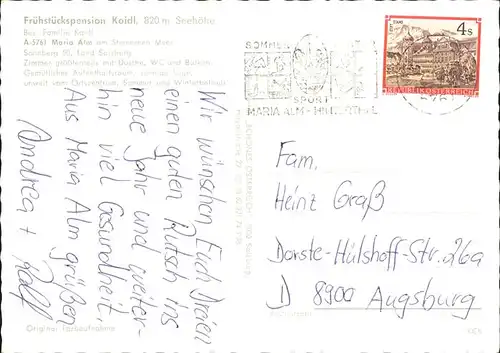 Frühstückspension Kaidl, 820 m Seehöhe
Bes. Familie Kaidl
A-5761 Maria Alm am Steinernen Meer
Sonnberg 50, Land Salzburg
Zimmer größtenteils mit Dusche, WC und Balkon,
Gemütlicher Aufenthaltsraum, sonnige Lage,
unweit vom Ortszentrum, Sommer und Winterbetrieb
Wir wünschen Euch Dreien
einen guten Rutsch ins
neue Jahr und weiter-
hin viel Gesundheit.
Aus Maria Alm grüßen
Andrea + Rolf
Original Farbaufnahme
SOMMER
SPORT
MARIA ALM - HINTERTHAL
4 S
REPUBLIK ÖSTERREICH
Fam.
Heinz Graß
Dorste-Hülshoff-Str. 26a
D 8900 Augsburg